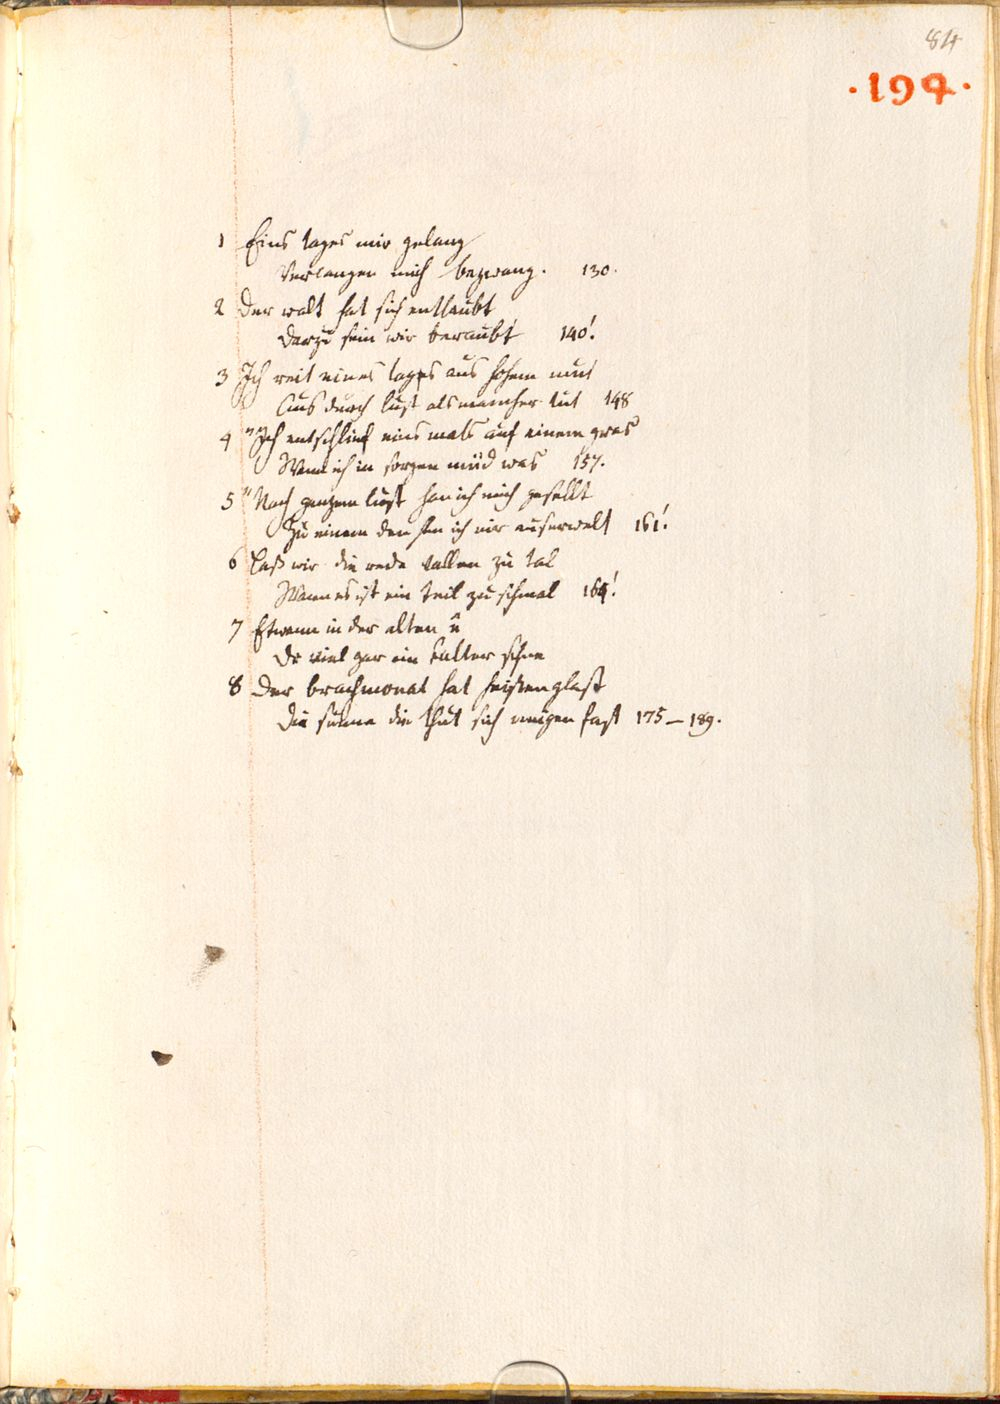 84
·194·
1 Eins tages mir gelang
Verlangen mich bezwang. 130.
2 Der walt hat sich entlaubt
Darzu sein wir beraubt 140!
3 Ich reit eines tages aus hohem mut
Aus durch lust als mancher tut 148
4 "" Ich entschlief eins mals auf einem gras
Wann ich in sorgen müd was 157.
5 " Nach ganzem lust han ich mich gesellt
Zu einem den han ich mir auserwelt 161!
6 Lass wir die rede fallen zu tal
Wann es ist ein teil zu schmal 164!
7 Etwenn in der alten
Do viel gar ein kalter schne
8 Der brachmonat hat heissen glast
Die sunne die thut sich neigen fast 175–189.